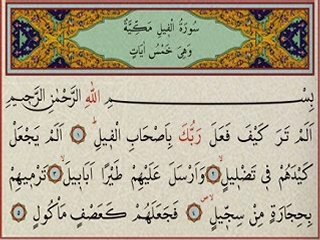 سُورَةُ الْفِيلِ مَكِّيَّةٌ
وَهِيَ خَمْسُ اٰيَاتٍ
بِسْــــــمِ اللّٰهِ الرَّحْمٰنِ الرَّحِيمِ
اَلَمْ تَرَ كَيْفَ فَعَلَ رَبُّكَ بِاَصْحَابِ الْفِيلِۜ ﴿١﴾ اَلَمْ يَجْعَلْ
كَيْدَهُمْ فِي تَضْلِيلٍۙ ﴿٢﴾ وَاَرْسَلَ عَلَيْهِمْ طَيْرًا اَبَابِيلَۙ ﴿٣﴾ تَرْمِيهِمْ
بِحِجَارَةٍ مِنْ سِجِّيلٍۙ ﴿٤﴾ فَجَعَلَهُمْ كَعَصْفٍ مَأْكُولٍ ﴿٥﴾